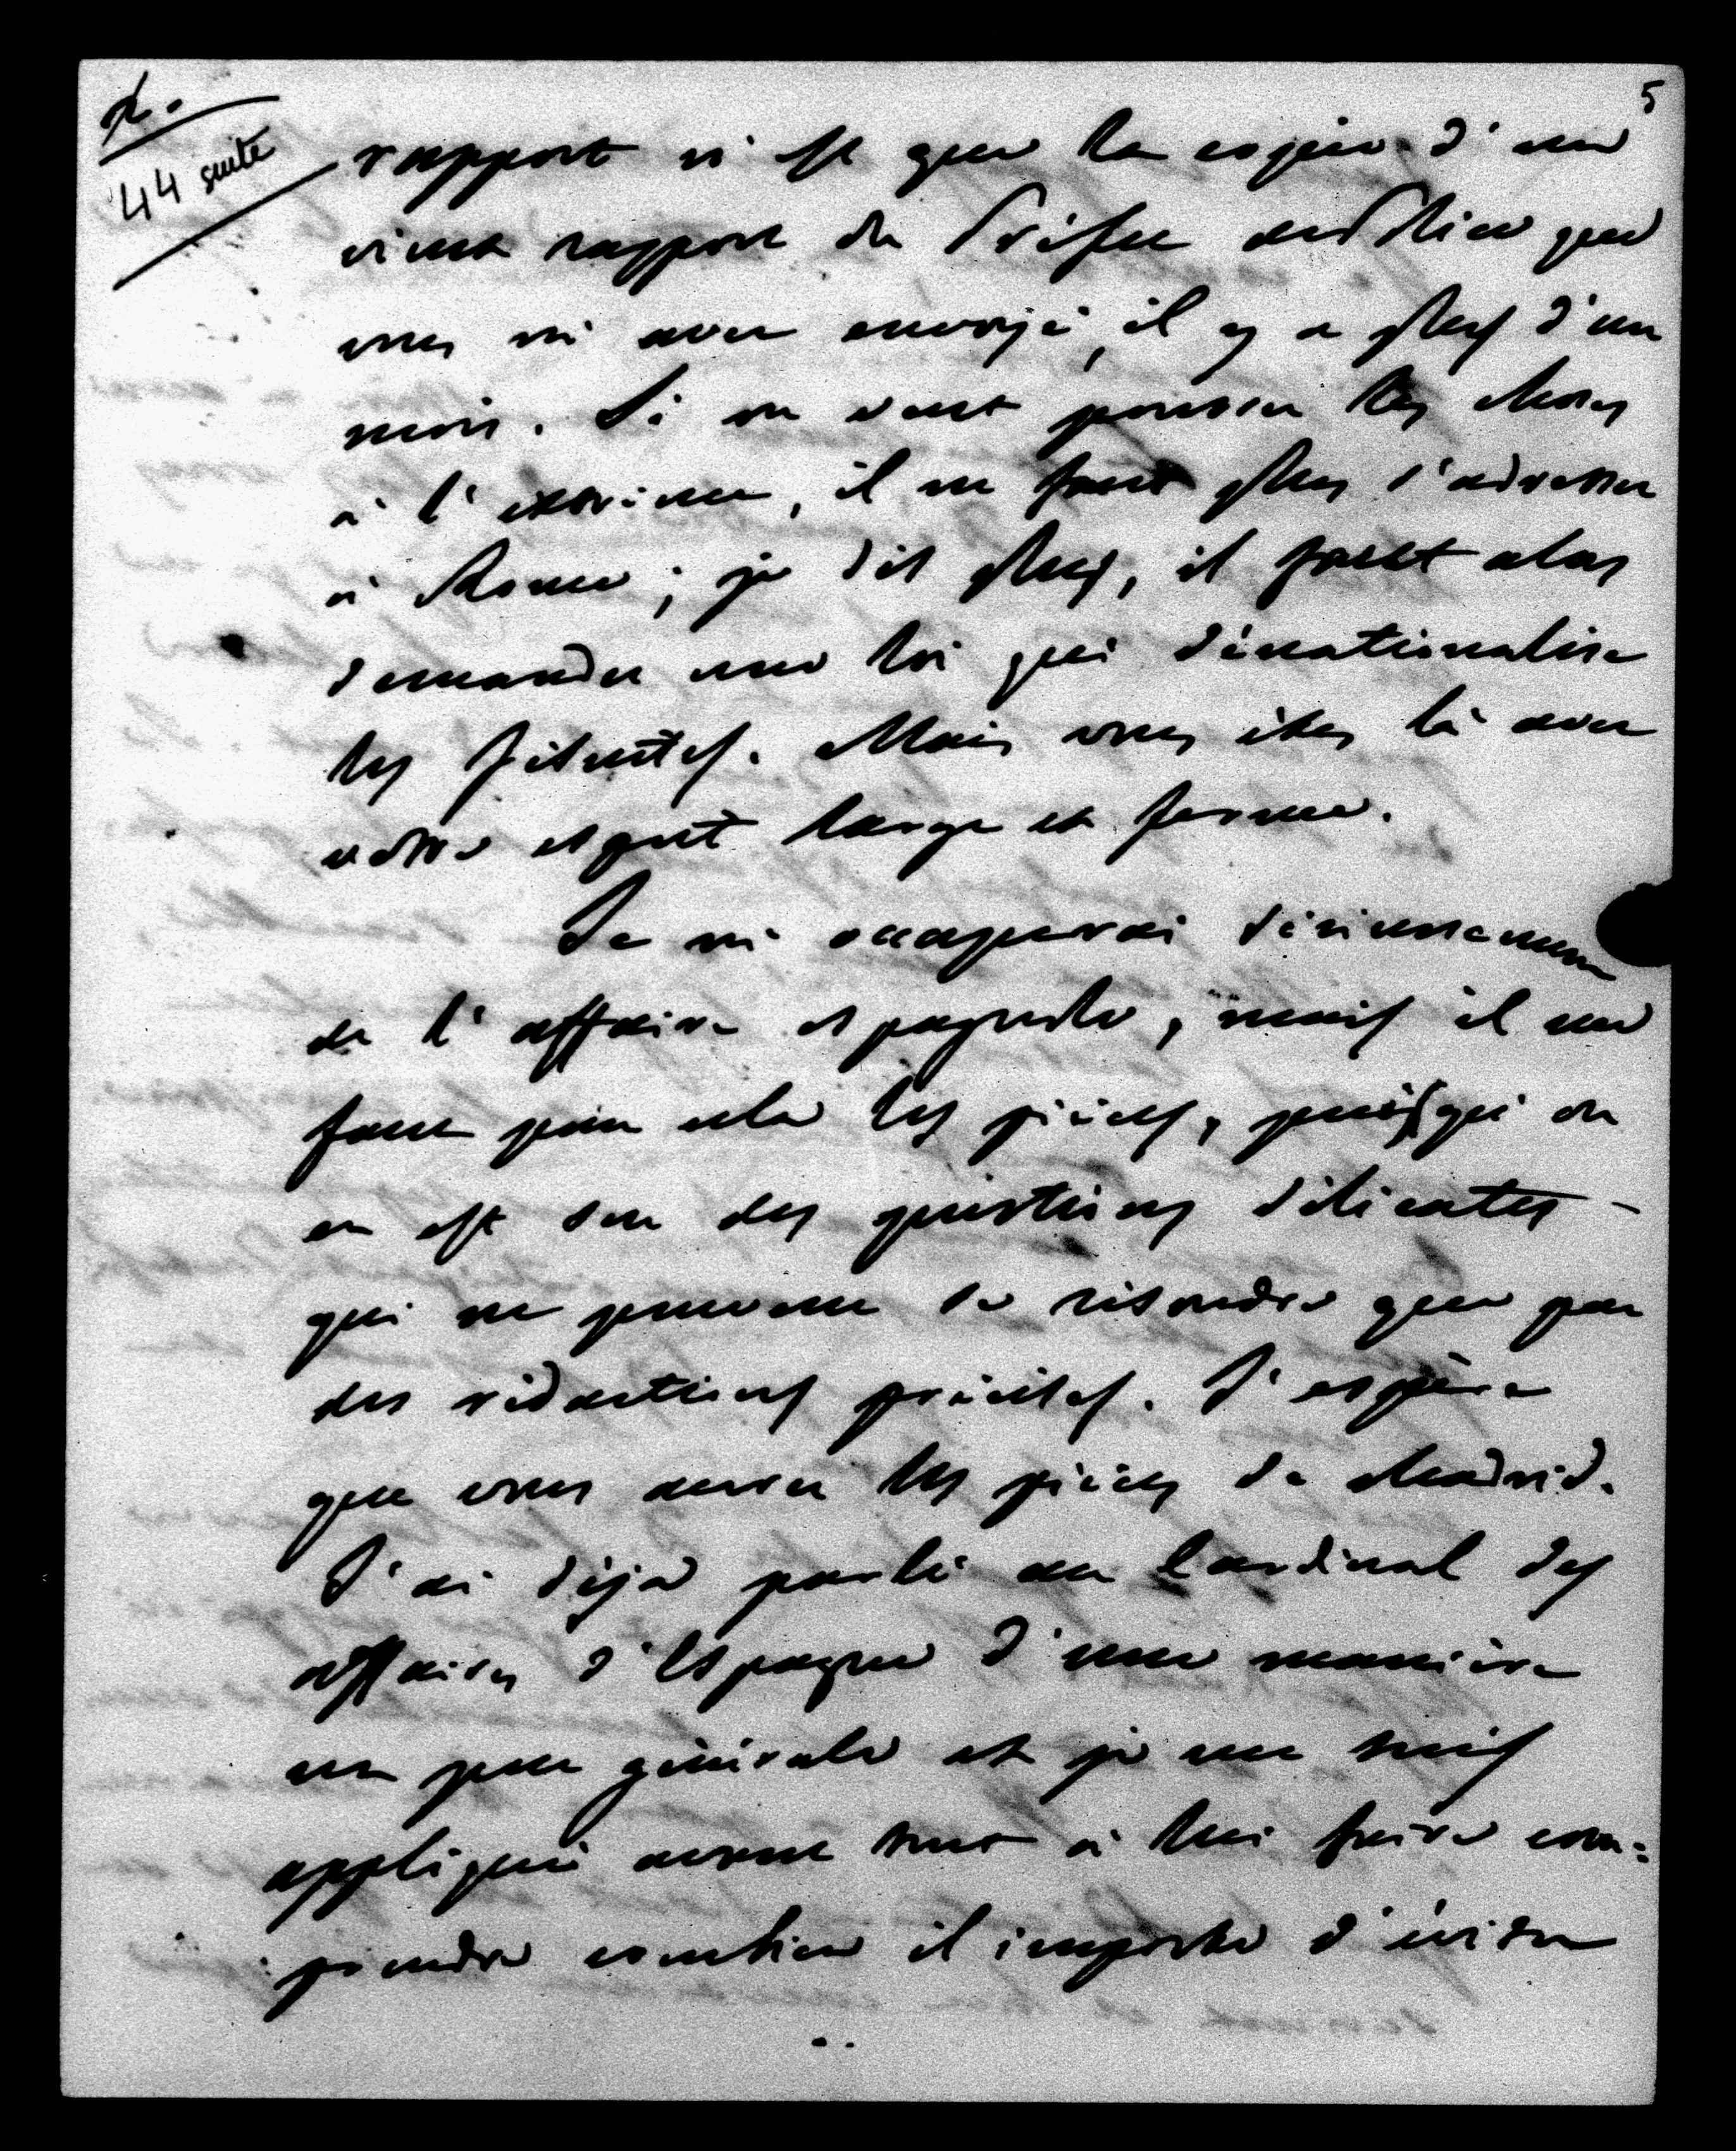 L.
44 suite
5
rapport n'est que la copie d'un
vieux rapport du Préfet de Police que
vous m'avez envoyé, il y a plus d'un
mois. Si on veut pousser les choses
à l'extrême, il ne faut plus s'adresser
à Rome ; je dis plus, il faut alors
demander une loi qui dénationalise
les Jésuites. Mais vous êtes là avec
votre esprit large et ferme.
Je m'occuperai sérieusement
de l'affaire espagnole, mais il me
faut pour cela les pièces, puisqu'on
en est sur des questions délicates
qui ne peuvent se résoudre que par
des rédactions précises. J'espère
que vous aurez les pièces de Madrid.
J'ai déjà parlé au Cardinal des
affaires d'Espagne d'une manière
un peu générale et je me suis
appliqué avant tout à lui faire com=
prendre combien il importe d'éviter